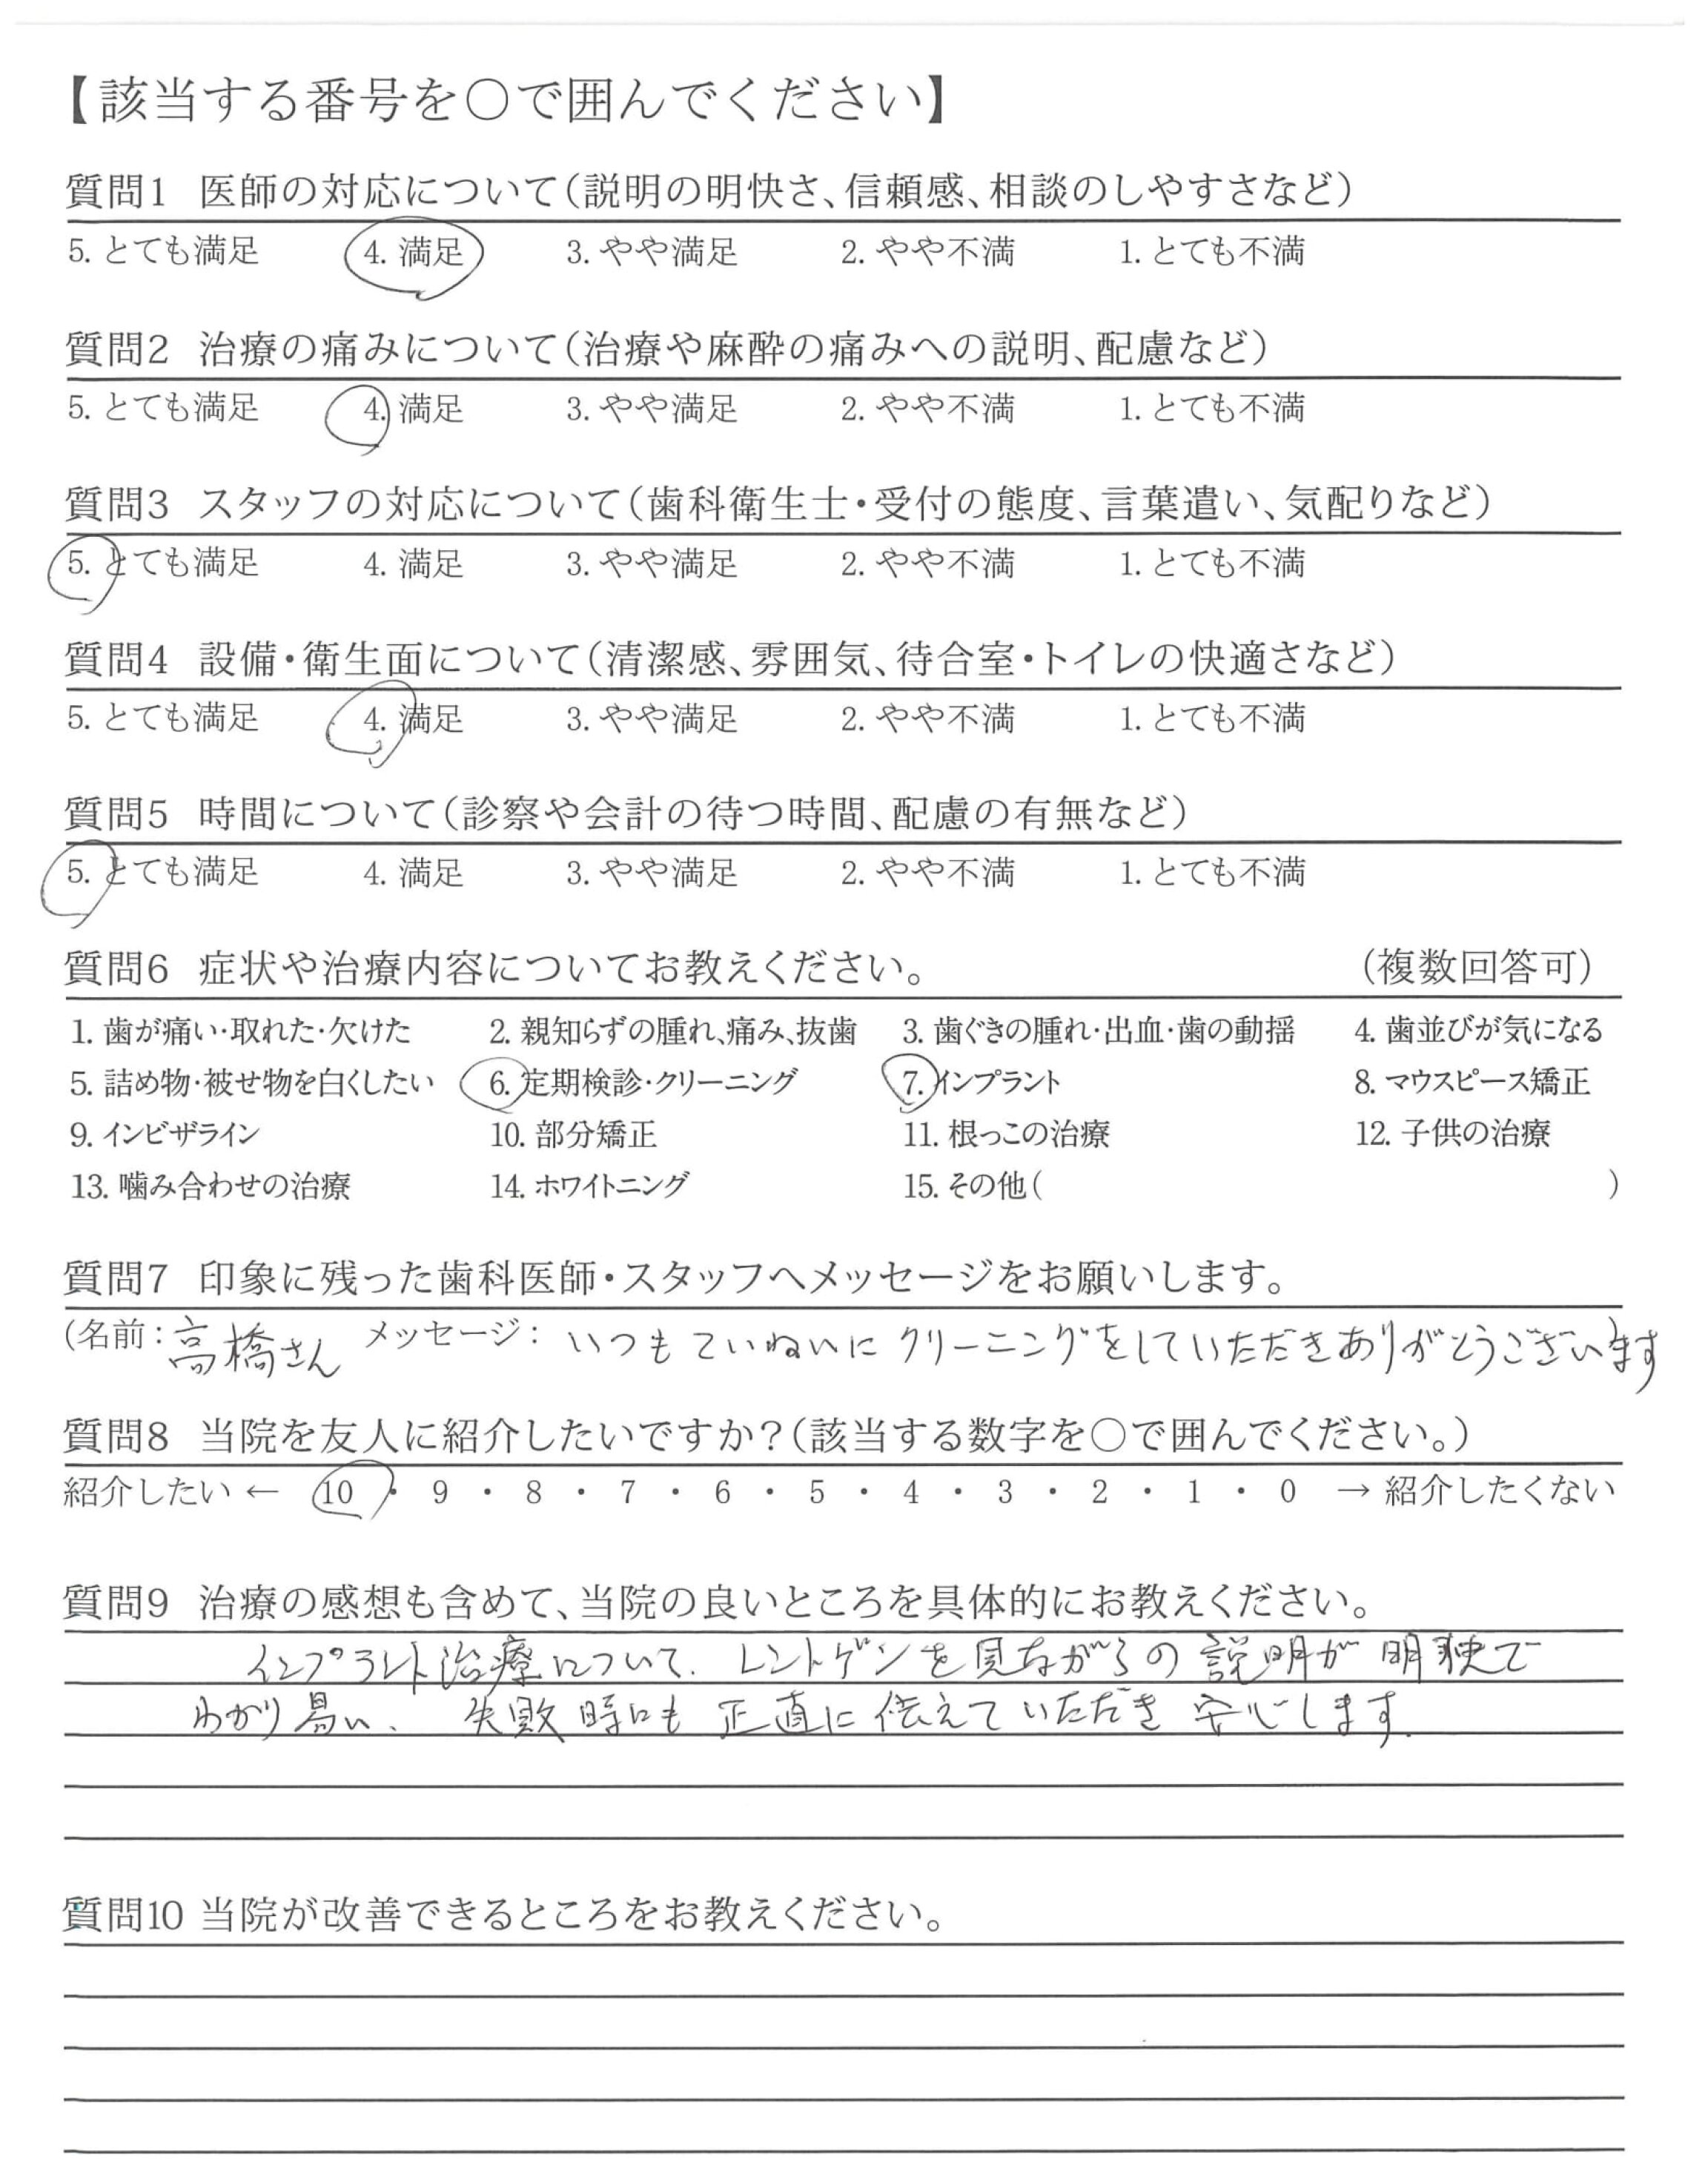 【該当する番号を〇で囲んでください】
質問1 医師の対応について（説明の明快さ、信頼感、相談のしやすさなど）
5. とても満足 4. 満足 3. やや満足 2. やや不満 1. とても不満
質問2 治療の痛みについて（治療や麻酔の痛みへの説明、配慮など）
5. とても満足 4. 満足 3. やや満足 2. やや不満 1. とても不満
質問3 スタッフの対応について（歯科衛生士・受付の態度、言葉遣い、気配りなど）
5. とても満足 4. 満足 3. やや満足 2. やや不満 1. とても不満
質問4 設備・衛生面について（清潔感、雰囲気、待合室・トイレの快適さなど）
5. とても満足 4. 満足 3. やや満足 2. やや不満 1. とても不満
質問5 時間について（診察や会計の待つ時間、配慮の有無など）
5. とても満足 4. 満足 3. やや満足 2. やや不満 1. とても不満
質問6 症状や治療内容についてお教えください。 （複数回答可）
1. 歯が痛い・取れた・欠けた 2. 親知らずの腫れ、痛み、抜歯 3. 歯ぐきの腫れ・出血・歯の動揺 4. 歯並びが気になる
5. 詰め物・被せ物を白くしたい 6. 定期検診・クリーニング 7. インプラント 8. マウスピース矯正
9. インビザライン 10. 部分矯正 11. 根っこの治療 12. 子供の治療
13. 噛み合わせの治療 14. ホワイトニング 15. その他（ ）
質問7 印象に残った歯科医師・スタッフへメッセージをお願いします。
（名前：高橋さん メッセージ：いつもていねいにクリーニングをしていただきありがとうございます
質問8 当院を友人に紹介したいですか？（該当する数字を〇で囲んでください。）
紹介したい ← 10 ・ 9 ・ 8 ・ 7 ・ 6 ・ 5 ・ 4 ・ 3 ・ 2 ・ 1 ・ 0 → 紹介したくない
質問9 治療の感想も含めて、当院の良いところを具体的にお教えください。
インプラント治療について、レントゲンを見ながらの説明が明快で
わかり易い、 失敗時にも正直に伝えていただき安心します。
質問10 当院が改善できるところをお教えください。